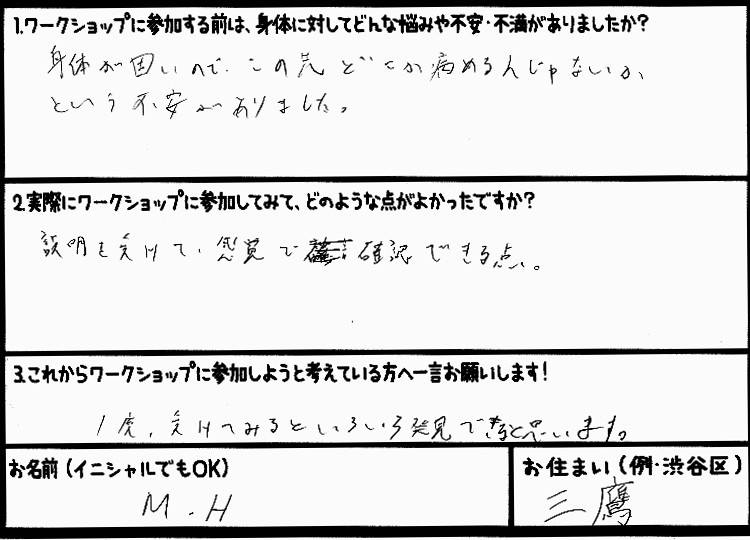 1.ワークショップに参加する前は、身体に対してどんな悩みや不安・不満がありましたか?
身体が固いので、この先どこか病めるんじゃないか、
という不安がありました。
2.実際にワークショップに参加してみて、どのような点がよかったですか?
説明を受けて、感覚で確認できる点。
3.これからワークショップに参加しようと考えている方へ一言お願いします!
1度、受けてみるといろいろ発見できると思います。
お名前(イニシャルでもOK)
M.H
お住まい(例・渋谷区)
三鷹